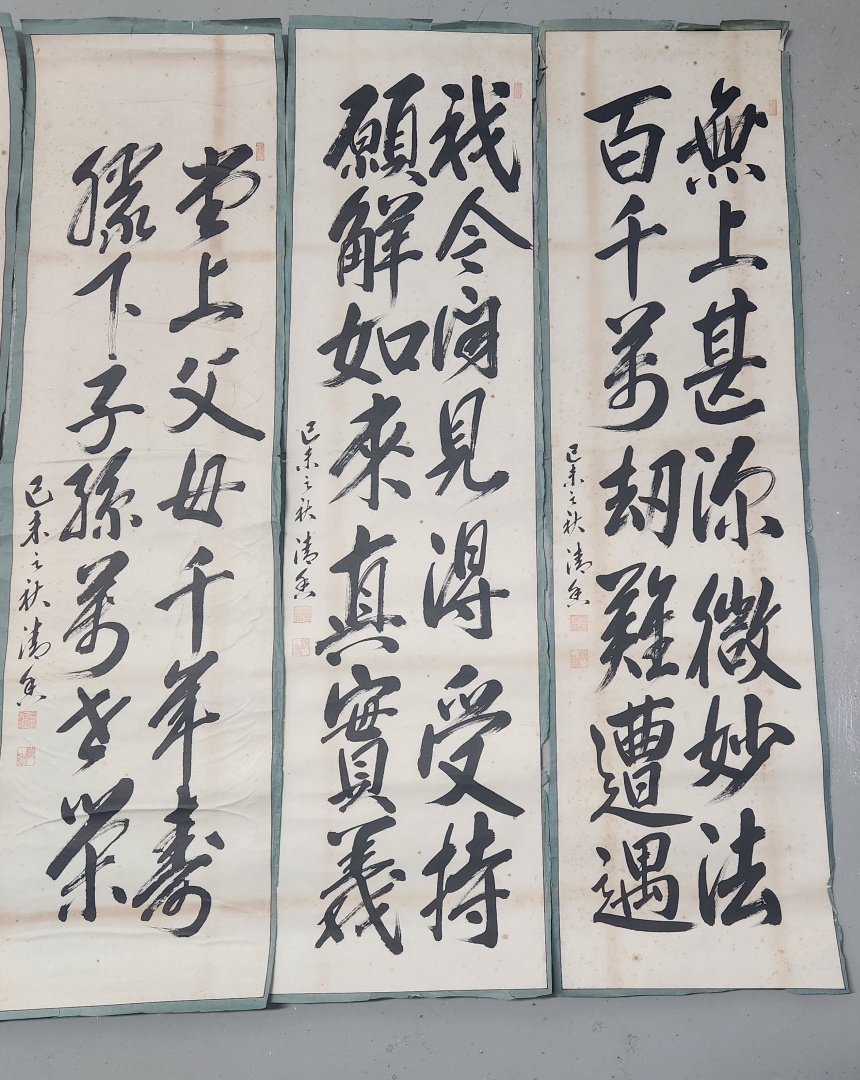 無上甚深微妙法
百千萬劫難遭遇
己未之秋 清香
我今聞見得受持
願解如來真實義
己未之秋 清香
堂上父母千年壽
膝下子孫萬世榮
己未之秋 清香